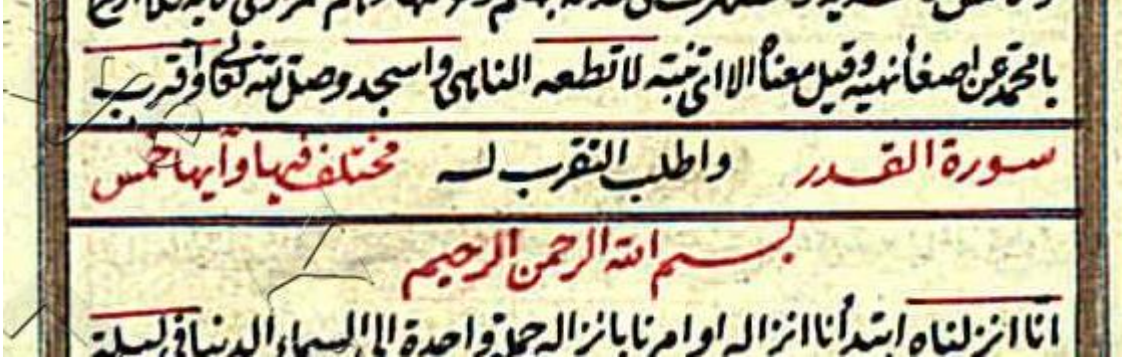 يا محمد عن اصغا نهيه وقيل معناه الا انتبه لا تطعه الناهى واسجد وصل لله تعالى واقترب
سورة القدر واطلب التقرب له مختلف فيها وآيها خمس
بسم الله الرحمن الرحيم
انا انزلناه ابتدأنا انزاله او امرنا بانزاله جملة واحدة الى السماء الدنيا فى ليلة